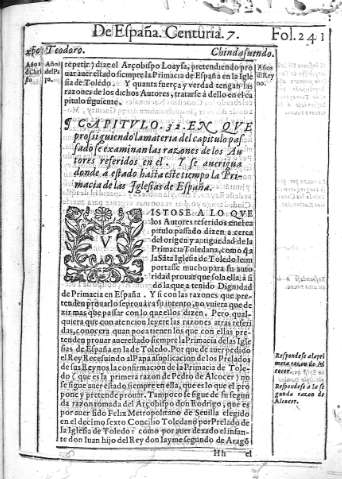 De España. Centuria. 7.
Fol. 241
Teodoro.
Chindasuendo.
repetir) dize el Arçobispo Loaysa, pretendiendo pro
uar auer estado siempre la Primacia de España en la Igle
sia de Toledo. Y quanta fuerça y verdad tengan las
razones de los dichos Autores, tratarse à dello en el ca
pitulo siguiente.
¶ CAPITVLO. 32. EN QVE
prosiguiendo la materia del capitulo pas
sado se examinan las razones de los Au
tores referidos en el. Y se auerigua
donde à estado hasta este tiempo la Pri
macia de las Iglesias de España.
VISTOSE A LO QVE
los Autores referidos en el ca
pitulo passado dizen a cerca
del origen y antiguedad de la
Primacia Toledana, como à
la Sãta Iglesia de Toledo le im
portasse mucho para su auto
ridad prouar que sola ella à si
do la que à tenido Dignidad
de Primacia en España. Y si con las razones que pre-
tenden prouarlo se prouara su intento, no vuiera que de
zir mas que passar con lo que ellos dizen. Pero qual-
quiera que con atencion leyere las razones atras referi
das, conocera quan poca tienen los que con ellas pre-
tenden prouar auer estado siempre la Primacia de las Igle
sias de España en la de Toledo. Por que de auer pedido
el Rey Recesuindo al Papa in aplicacion de los Prelados
de sus Reynos la confirmacion de la Primacia de Tole-
do (que es la primera razon de Pedro de Alcocer) no
se sigue auer estado siempre en ella, que es lo que el pro
pone y pretende prouar. Tampoco se sigue de su segun
da razon tomada del Arçobispo don Rodrigo, que es
por auer sido Felix Metropolitano de Seuilla elegido
en el decimo sexto Concilio Toledano por Prelado de
la Iglesia de Toledo: como por auer dexado el infan-
te don Iuan hijo del Rey don Iayme segundo de Aragõ
Respondese a la pri
mera razon de Al
cocer.
Respondese à la se
gunda razon de
Alcocer.
Hh
el